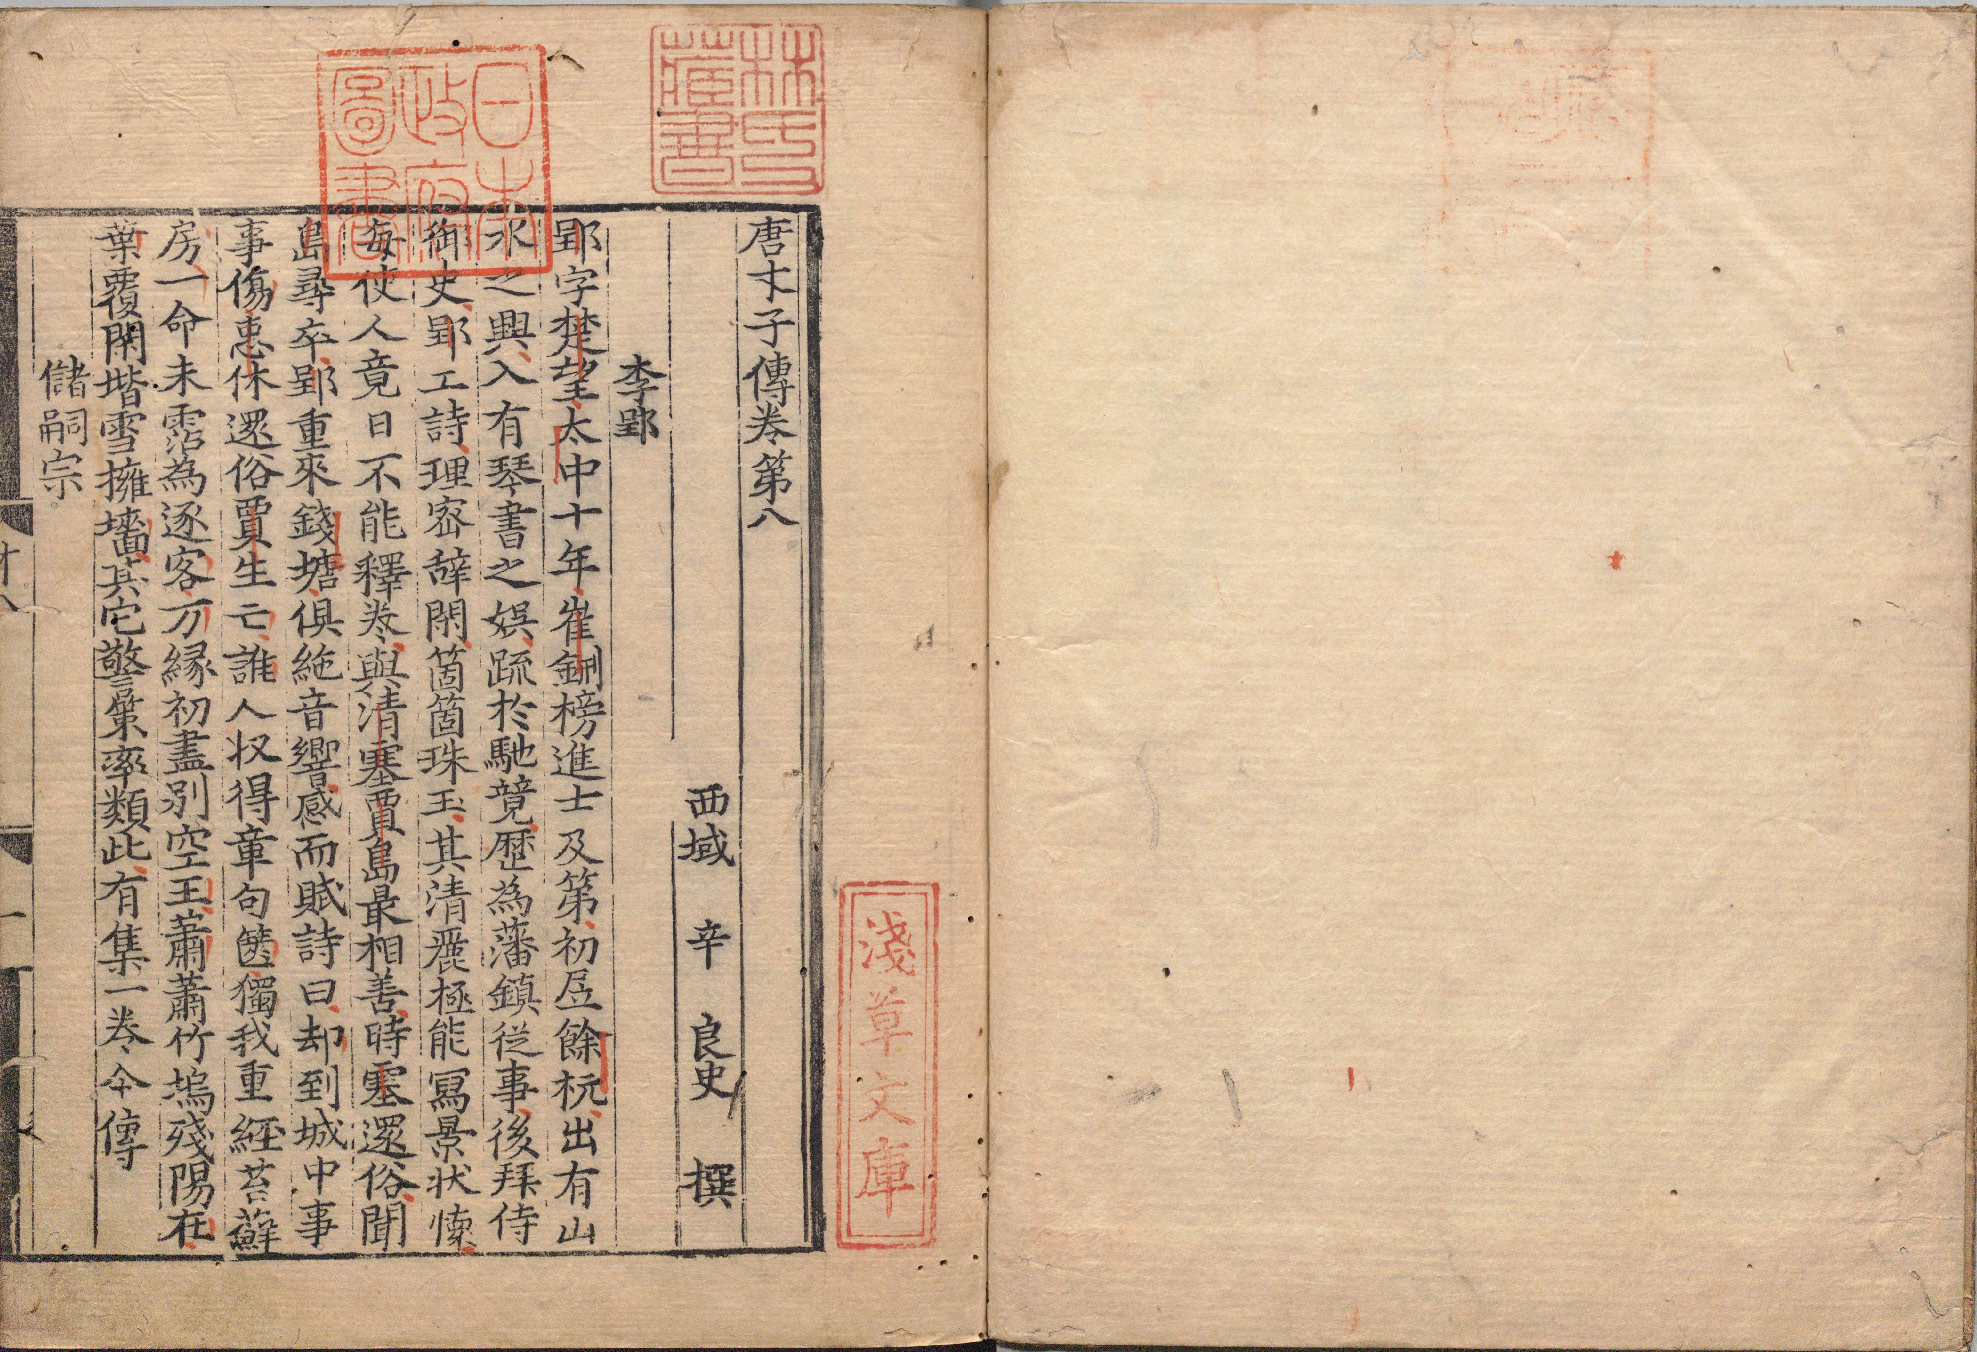 唐才子傳卷第八
西域 辛 良史 撰
李郢
郢字楚望太中十年崔鉶榜進士及第初居餘杭出有山
水之興入有琴書之娯疏於馳競歷為藩鎮從事後拜侍
御史郢工詩理密辭閑箇箇珠玉其清麗極能寫景狀懐
每使人竟日不能釋卷與清塞賈島最相善時塞還俗聞
島尋卒郢重來錢塘俱絶音響感而賦詩曰却到城中事
事傷惠休還俗賈生亡誰人收得章句篋獨我重經苔蘚
房一命未霑為逐客万縁初盡別空王蕭蕭竹塢殘陽在
葉覆閑堦雪擁墻其它警策率類此有集一卷今傳
儲嗣宗
才八
一
林氏藏書
日本政府圖書
淺草文庫